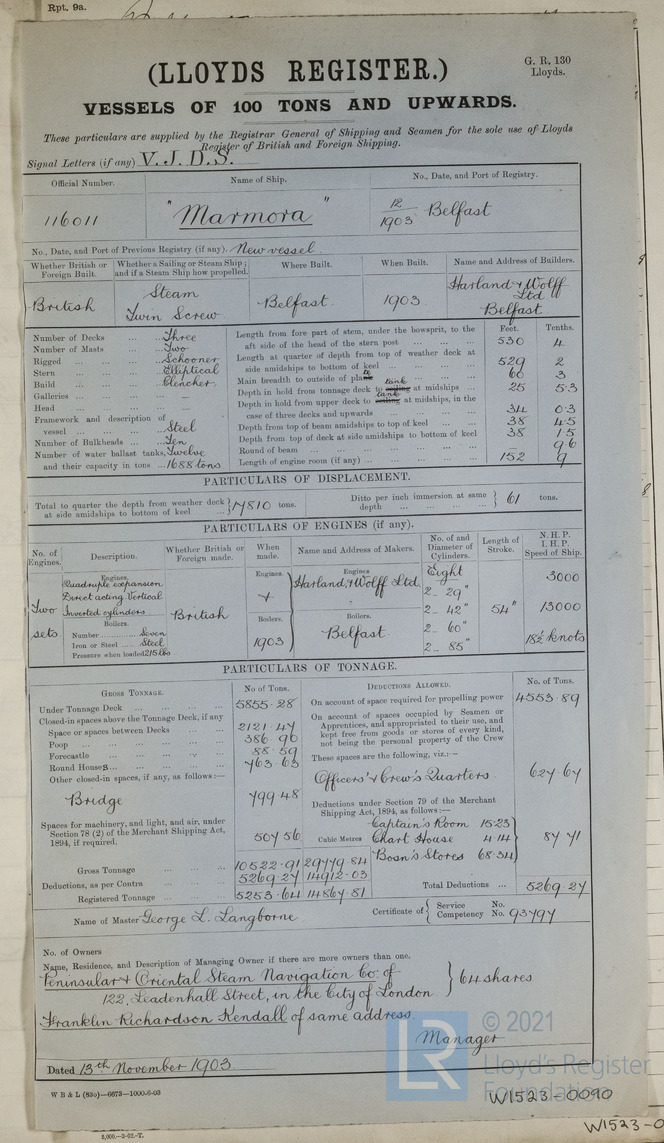 Rpt. 9a.
(LLOYDS REGISTER.)
G. R. 130
Lloyds.
VESSELS OF 100 TONS AND UPWARDS.
These particulars are supplied by the Registrar General of Shipping and Seamen for the sole use of Lloyds
Register of British and Foreign Shipping.
Signal Letters (if any) V. J. D. S.
Official Number. Name of Ship. No., Date, and Port of Registry.
116011 "Marmora" 12/1903 Belfast
No., Date, and Port of Previous Registry (if any). New vessel
Whether British or Foreign Built. Whether a Sailing or Steam Ship; and if a Steam Ship how propelled. Where Built. When Built. Name and Address of Builders.
British Steam Twin Screw Belfast 1903 Harland & Wolff Ltd Belfast
Number of Decks Three
Number of Masts Two
Rigged Schooner
Stern Elliptical
Build Clencher
Galleries —
Head —
Framework and description of vessel Steel
Number of Bulkheads Ten
Number of water ballast tanks, Twelve
and their capacity in tons 1688 tons
Feet. Tenths.
Length from fore part of stem, under the bowsprit, to the aft side of the head of the stern post 530 4
Length at quarter of depth from top of weather deck at side amidships to bottom of keel 529 2
Main breadth to outside of plate 60 3
Depth in hold from tonnage deck to ceiling tank at midships 25 5.3
Depth in hold from upper deck to ceiling tank at midships, in the case of three decks and upwards 34 0.3
Depth from top of beam amidships to top of keel 38 4.5
Depth from top of deck at side amidships to bottom of keel 38 1.5
Round of beam — 9.6
Length of engine room (if any) 152 9
PARTICULARS OF DISPLACEMENT.
Total to quarter the depth from weather deck at side amidships to bottom of keel 17810 tons. Ditto per inch immersion at same depth 61 tons.
PARTICULARS OF ENGINES (if any).
No. of Engines. Description. Whether British or Foreign made. When made. Name and Address of Makers. No. of and Diameter of Cylinders. Length of Stroke. N.H.P. I.H.P. Speed of Ship.
Two sets
Engines.
Quadruple expansion
Direct acting Vertical
Inverted cylinders
Boilers.
Number Seven
Iron or Steel Steel
Pressure when loaded 215 lbs
British
Engines.
Boilers.
1903
Engines.
Harland & Wolff Ltd
Boilers.
Belfast
Eight
2 - 29"
2 - 42"
2 - 60"
2 - 85"
54"
3000
13000
18½ knots
PARTICULARS OF TONNAGE.
GROSS TONNAGE. No of Tons.
Under Tonnage Deck 5855.28
Closed-in spaces above the Tonnage Deck, if any
Space or spaces between Decks 2121.47
Poop 386.90
Forecastle 88.59
Round House 763.63
Other closed-in spaces, if any, as follows:—
Bridge 799.48
Spaces for machinery, and light, and air, under Section 78 (2) of the Merchant Shipping Act, 1894, if required. 507.56
Cubic Metres
Gross Tonnage 10522.91 29779.84
Deductions, as per Contra 5269.27 14912.03
Registered Tonnage 5253.64 14867.81
DEDUCTIONS ALLOWED. No. of Tons.
On account of space required for propelling power 4553.89
On account of spaces occupied by Seamen or Apprentices, and appropriated to their use, and kept free from goods or stores of every kind, not being the personal property of the Crew
These spaces are the following, viz.:—
Officers' & Crew's Quarters 627.67
Deductions under Section 79 of the Merchant Shipping Act, 1894, as follows:—
Captain's Room 15.23
Chart House 4.14
Bosn's Stores 68.34
87.71
Total Deductions 5269.27
Name of Master George L. Langborne Certificate of { Service No. Competency No. 93797
No. of Owners
Name, Residence, and Description of Managing Owner if there are more owners than one.
Peninsular & Oriental Steam Navigation Co. of
122, Leadenhall Street, in the City of London } 64 shares
Franklin Richardson Kendall of same address
Manager
Dated 13th November 1903
W B & L (83o)—6673—1000-6-03
LR
© 2021
Lloyd's Register
Foundation
W1523-0090
5,000.—3-02.-T.
W1523-0